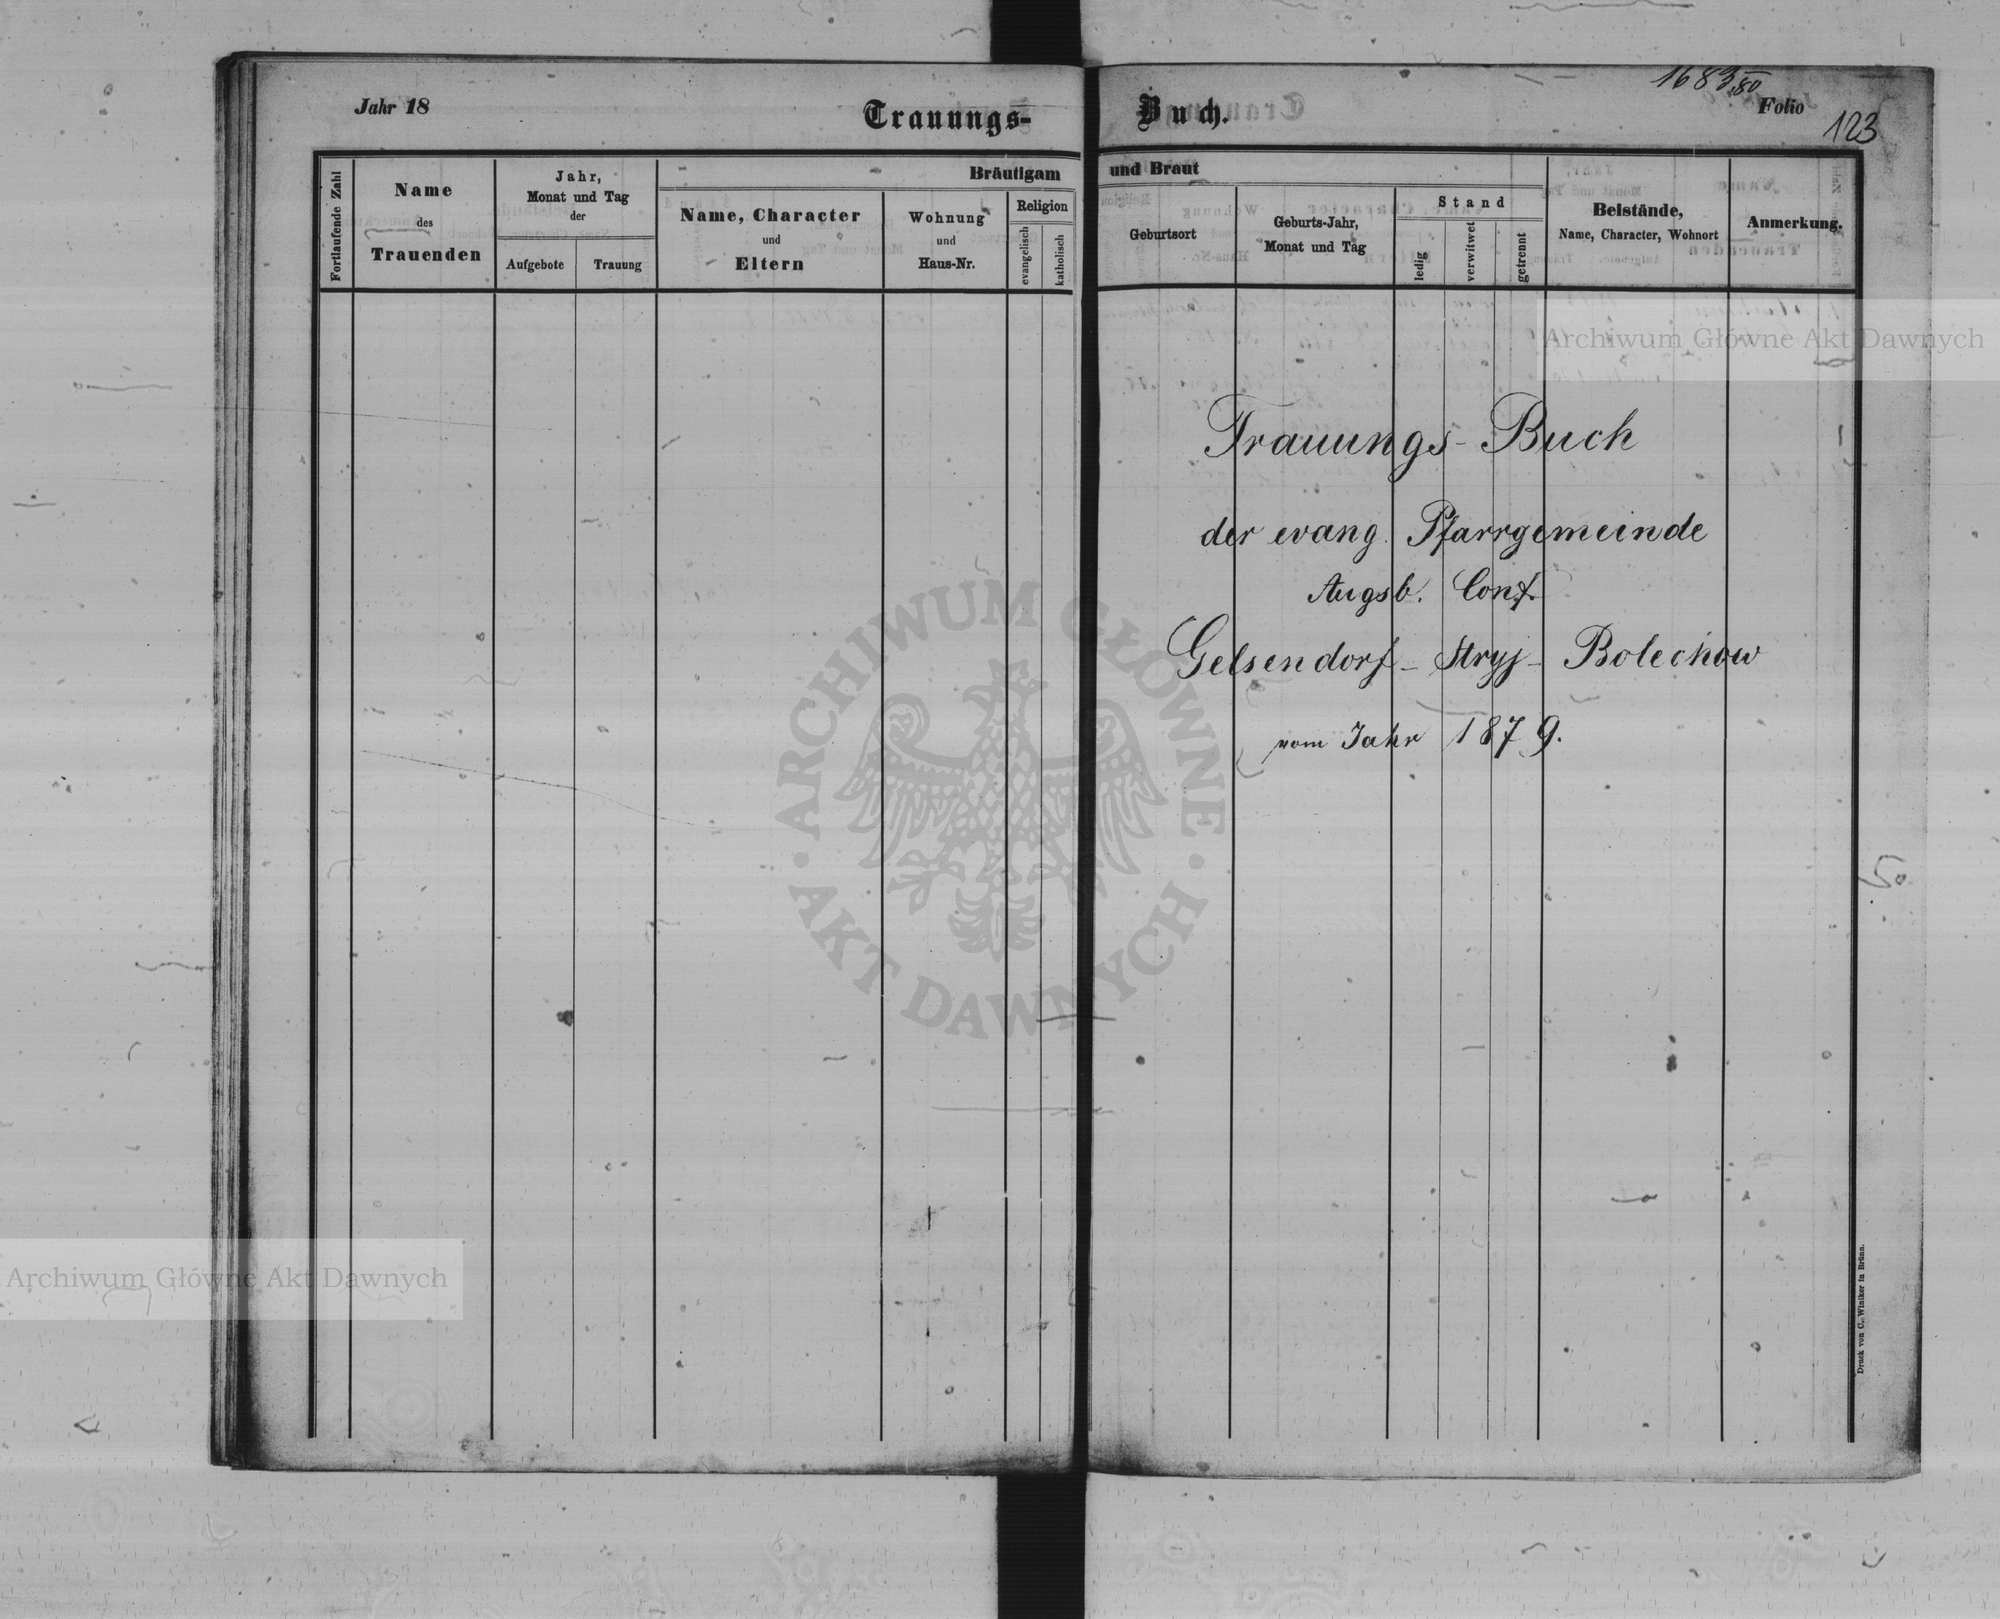 Jahr 18
Trauungs-
Buch.
Folio
123
Fortlaufende Zahl
Name
des
Trauenden
Jahr,
Monat und Tag
der
Aufgebote
Trauung
Bräutigam
und Braut
Name, Character
und
Eltern
Wohnung
und
Haus-Nr.
Religion
evangelisch
katholisch
Geburtsort
Geburts-Jahr,
Monat und Tag
Stand
ledig
verwitwet
getrennt
Beistände,
Name, Character, Wohnort
Anmerkung.
Trauungs-Buch
der evang. Pfarrgemeinde
Augsb. Conf.
Gelsendorf - Stryj - Bolechow
vom Jahr 1879.
Druck von C. Winiker in Brünn.
Archiwum Główne Akt Dawnych
ARCHIWUM GŁÓWNE · AKT DAWNYCH ·
Archiwum Główne Akt Dawnych